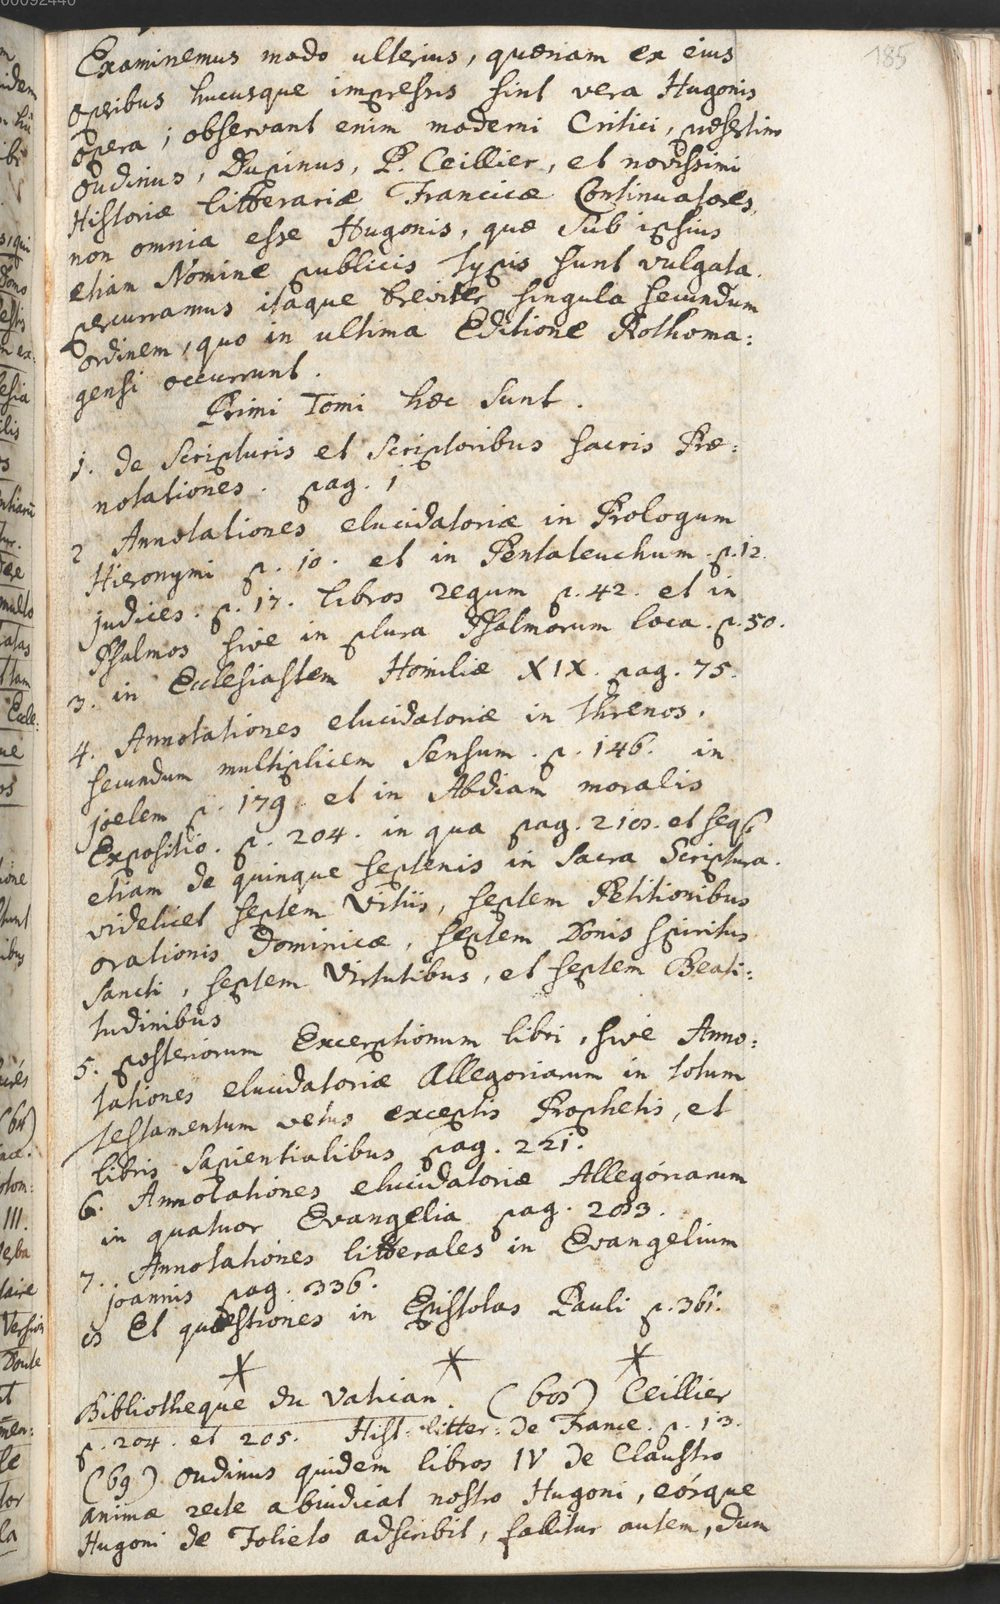 185
Examinemus modo ulterius, quænam ex eius
operibus hucusque impressis sint vera Hugonis
opera; observant enim moderni Critici, præsertim
Oudinus, Dupinus, P. Ceillier, et novissimi
Historiæ litterariæ Francicæ Continuatores,
non omnia esse Hugonis, quæ sub ipsius
etiam Nomine publicis typis sunt vulgata.
percurramus itaque breviter singula secundum
ordinem, quo in ultima Editione Rothoma:
gensi occurrunt.
Primi Tomi hæc sunt.
1. de Scripturis et Scriptoribus sacris Præ:
notationes. pag. 1
2 Annotationes elucidatoriæ in Prologum
Hieronymi p. 10. et in Pentateuchum. p. 12.
judices. p. 17. libros regum p. 42. et in
Psalmos sive in plura Psalmorum loca. p. 50.
3. in Ecclesiastem Homiliæ XIX. pag. 75.
4. Annotationes elucidatoriæ in threnos.
secundum multiplicem sensum. p. 146. in
joelem p. 179. et in Abdiam moralis
Expositio. p. 204. in qua pag. 218. et seqq
etiam de quinque septenis in sacra Scriptura.
videlicet septem Vitiis, septem Petitionibus
orationis Dominicæ, septem Donis spiritus
Sancti, septem Virtutibus, et septem Beati:
tudinibus
5. posteriorum Excerptionum libri, sive Anno:
tationes elucidatoriæ Allegoriarum in totum
testamentum vetus exceptis Prophetis, et
libris sapientialibus pag. 221.
6. Annotationes elucidatoriæ Allegoriarum
in quatuor Evangelia pag. 283.
7. Annotationes litterales in Evangelium
joannis pag. 336.
8 Et quæstiones in Epistolas Pauli p. 361.
Bibliotheque du Vatican. (68) Ceillier
p. 204. et 205. Hist: litter: de France. p. 13.
(69) Oudinus quidem libros IV de Claustro
animæ recte abiudicat nostro Hugoni, eósque
Hugoni de Folieto adscribit, fallitur autem, dum